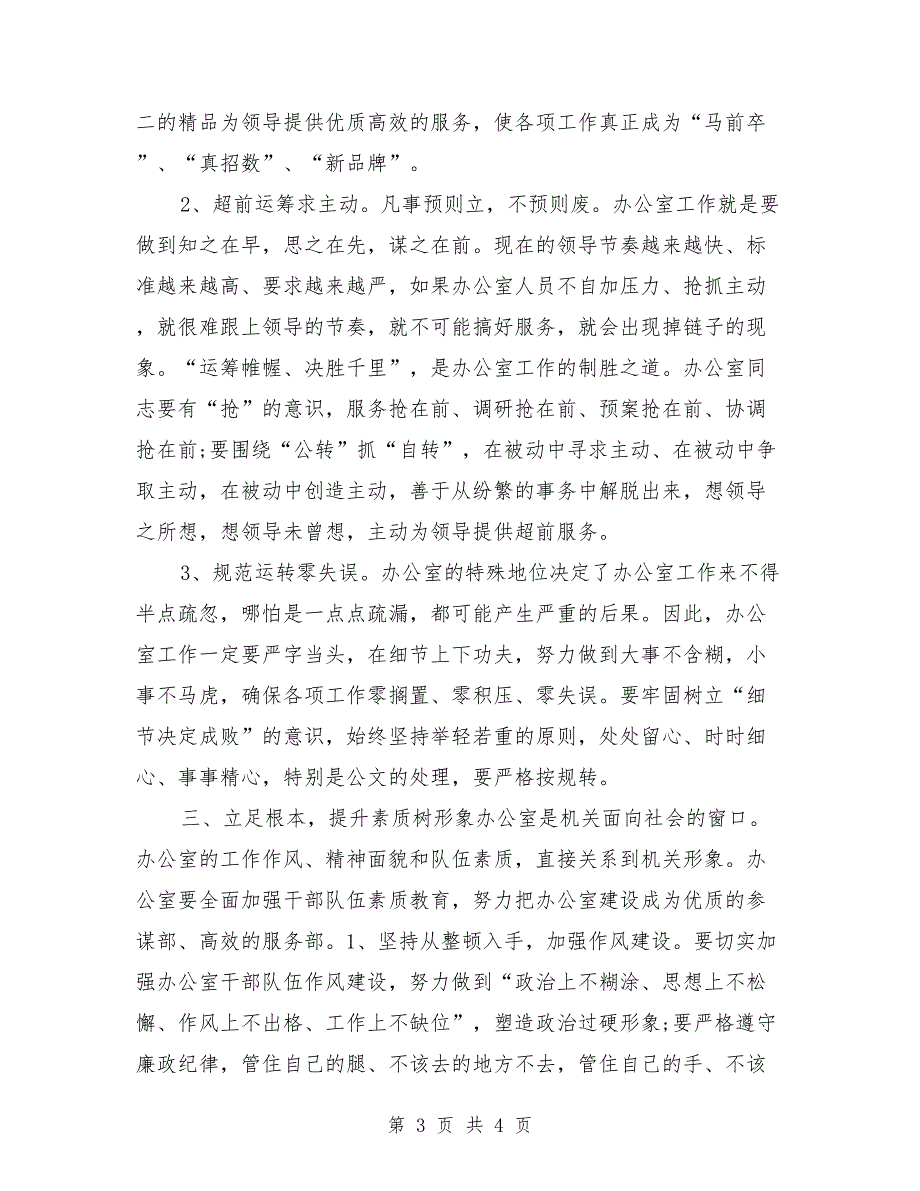 二的精品为领导提供优质高效的服务，使各项工作真正成为“马前卒
”、“真招数”、“新品牌”。
2、超前运筹求主动。凡事预则立，不预则废。办公室工作就是要
做到知之在早，思之在先，谋之在前。现在的领导节奏越来越快、标
准越来越高、要求越来越严，如果办公室人员不自加压力、抢抓主动
，就很难跟上领导的节奏，就不可能搞好服务，就会出现掉链子的现
象。“运筹帷幄、决胜千里”，是办公室工作的制胜之道。办公室同
志要有“抢”的意识，服务抢在前、调研抢在前、预案抢在前、协调
抢在前;要围绕“公转”抓“自转”，在被动中寻求主动、在被动中争
取主动，在被动中创造主动，善于从纷繁的事务中解脱出来，想领导
之所想，想领导未曾想，主动为领导提供超前服务。
3、规范运转零失误。办公室的特殊地位决定了办公室工作来不得
半点疏忽，哪怕是一点点疏漏，都可能产生严重的后果。因此，办公
室工作一定要严字当头，在细节上下功夫，努力做到大事不含糊，小
事不马虎，确保各项工作零搁置、零积压、零失误。要牢固树立“细
节决定成败”的意识，始终坚持举轻若重的原则，处处留心、时时细
心、事事精心，特别是公文的处理，要严格按规转。
三、立足根本，提升素质树形象办公室是机关面向社会的窗口。
办公室的工作作风、精神面貌和队伍素质，直接关系到机关形象。办
公室要全面加强干部队伍素质教育，努力把办公室建设成为优质的参
谋部、高效的服务部。1、坚持从整顿入手，加强作风建设。要切实加
强办公室干部队伍作风建设，努力做到“政治上不糊涂、思想上不松
懈、作风上不出格、工作上不缺位”，塑造政治过硬形象;要严格遵守
廉政纪律，管住自己的腿、不该去的地方不去，管住自己的手、不该
第 3 页 共 4 页